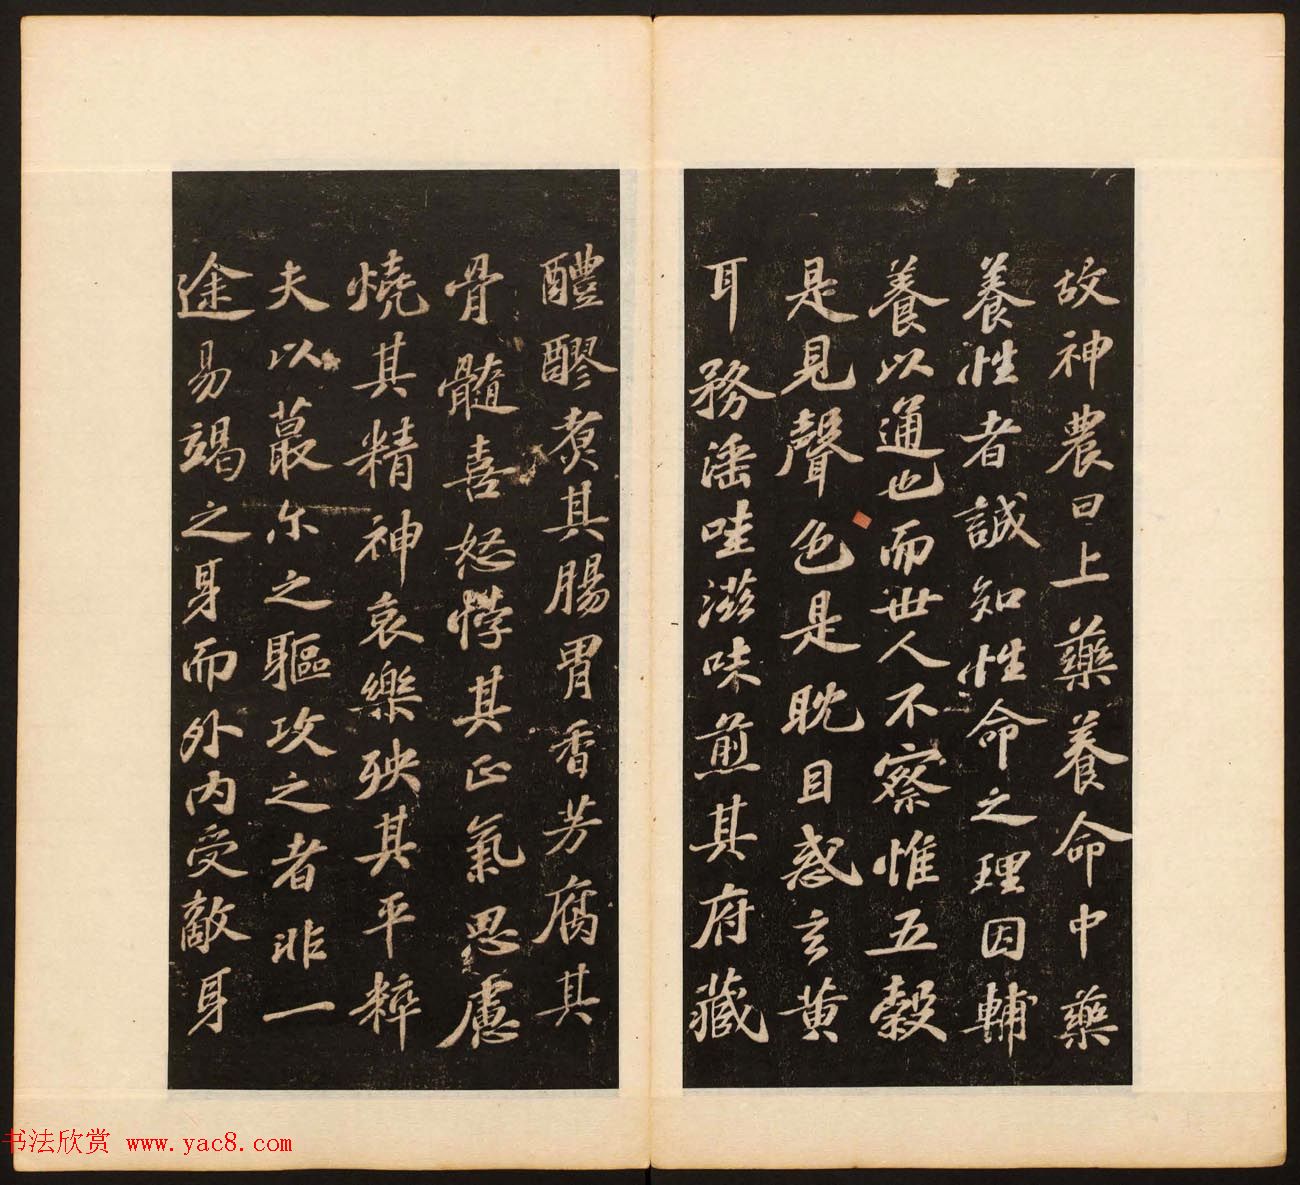 故神農曰上藥養命中藥
養性者誠知性命之理因輔
養以通也而世人不察惟五穀
是見聲色是耽目惑玄黃
耳務滛哇滋味煎其府藏
醴醪煮其腸胃香芳腐其
骨髓喜怒悖其正氣思慮
燒其精神哀樂殃其平粹
夫以蕞尔之軀攻之者非一
途易竭之身而外内受敵身
书法欣赏 www.yac8.com